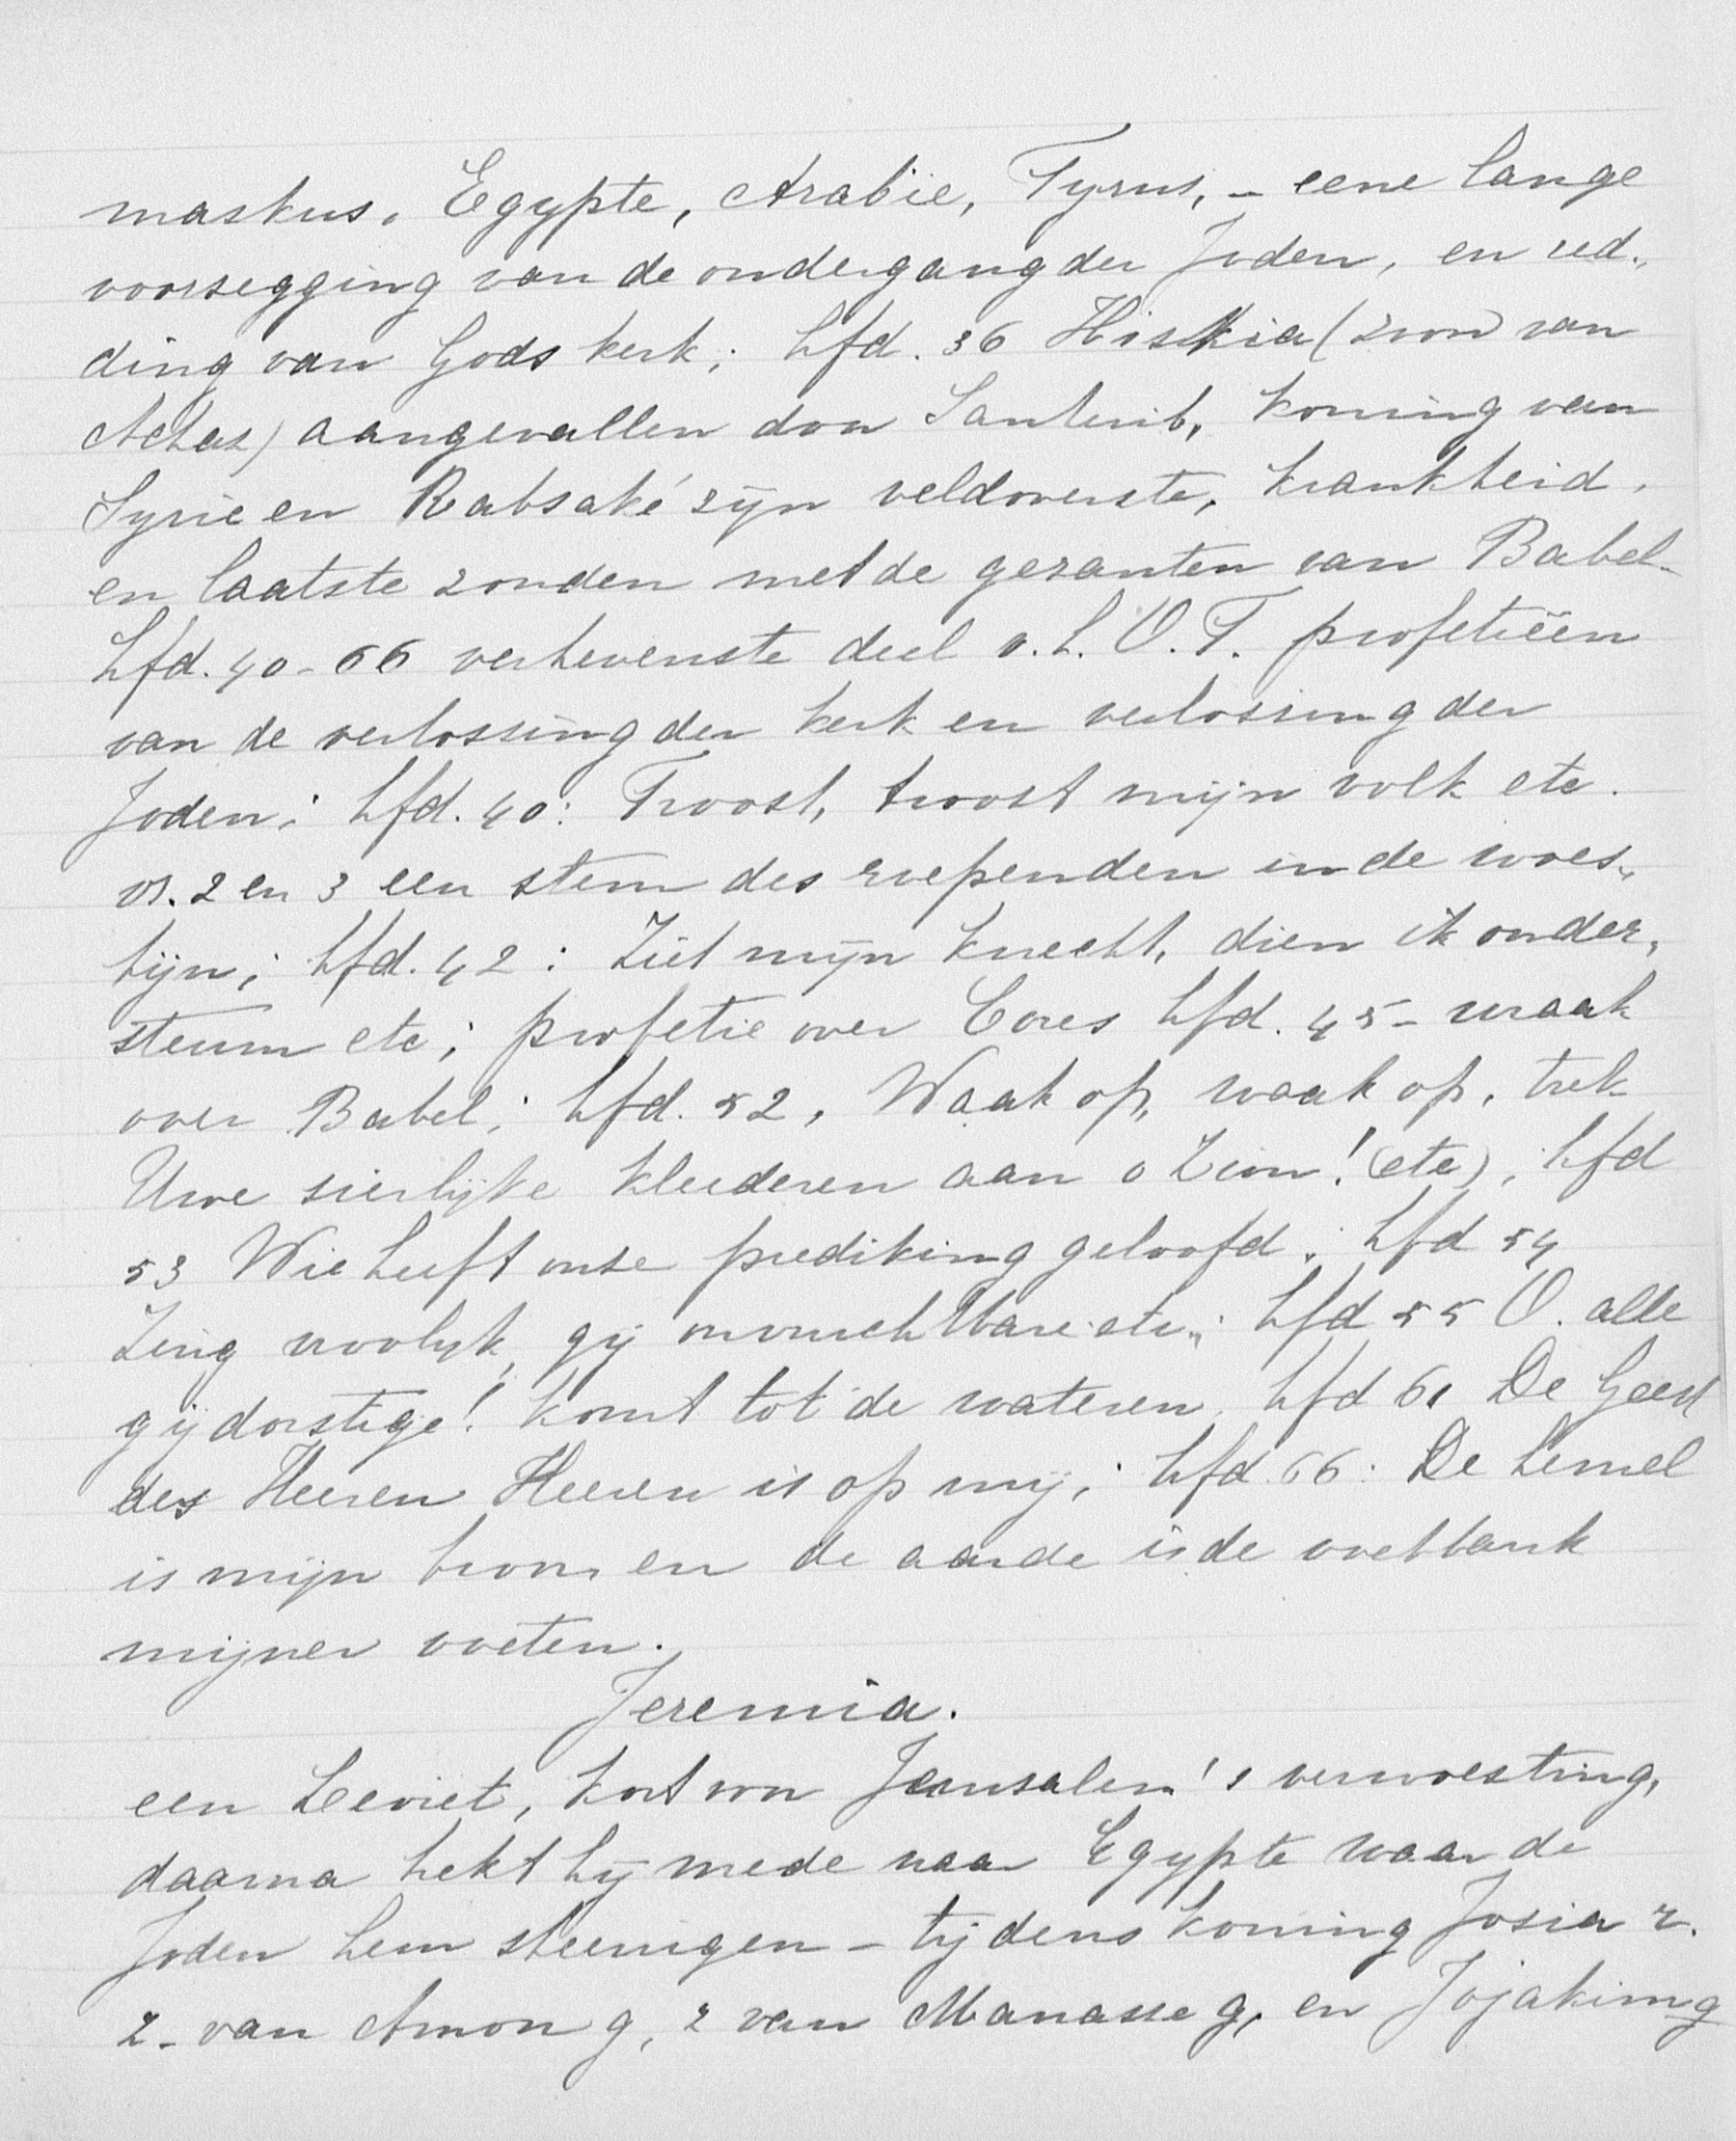 maskus, Egypte, Arabïe, Tyrus, - eene lange
voorsegging van de ondergang der Joden, en red„
ding van Gods kerk; hfd. 36 Hiskia (zoon van
Achas) aangevallen door Sanherib, koning van
Syrie en Rabsaké zijn veldoverste, krankheid,
en laatste zonden met de gezanten van Babel-
hfd. 40-66 verhevenste deel v. h. O. T. profetiëen
van de verlossing der kerk en verlossing der
Joden; hfd. 40: Troost, troost mijn volk etc.
vs. 2 en 3 een stem des roependen in de woes„
tijn; hfd. 42: Ziet mijn knecht, dien ik onder„
steun etc; profetie over Cores hfd. 45 - wraak
over Babel; hfd. 52, Waak op, waak op, trek
Uwe sierlijke kleederen aan o Zion! (etc); hfd
53 Wie heeft onse prediking geloofd; hfd 54
Zing vroolijk, gij onvruchtbare etc; hfd 55 O. alle
gij dorstige! komt tot de wateren, hfd 61 De Geest
des Heeren Heeren is op mij; hfd. 66: De hemel
is mijn troon, en de aarde is de voetbank
mijner voeten.
Jeremia.
een Leviet, kort voor Jerusalem's verwoesting,
daarna trekt hij mede naar Egypte waar de
Joden hem steenigen - tijdens koning Josia z.
z. van Amon g, z van Manasse g, en Jojakim g